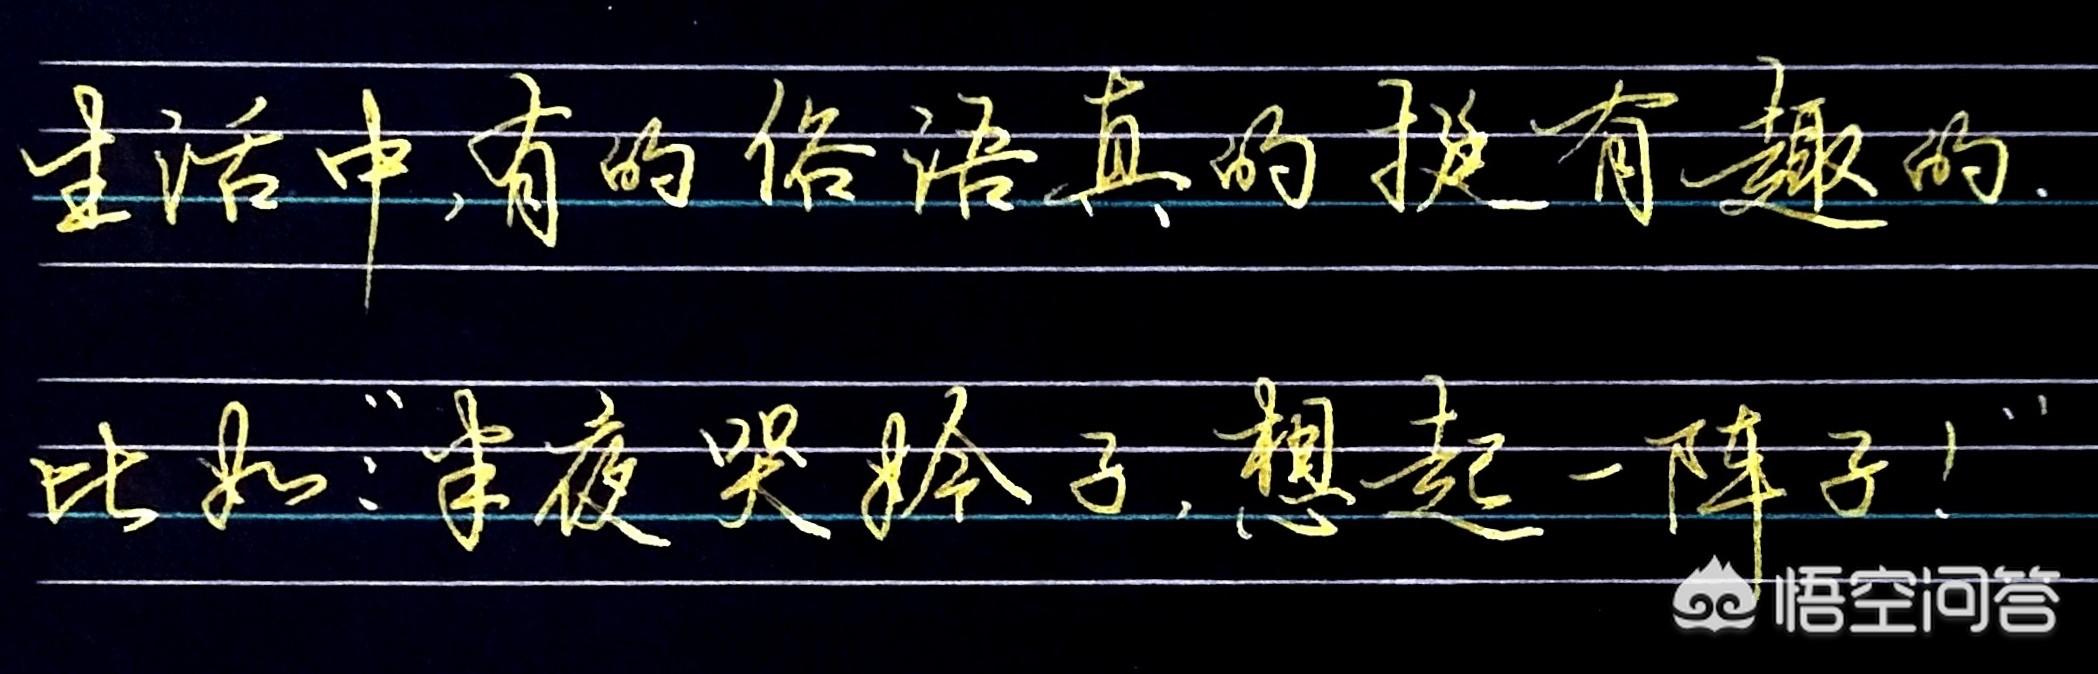 生活中,有的俗语真的挺有趣的.
比如:“半夜哭妗子,想起一阵子!”
悟空问答